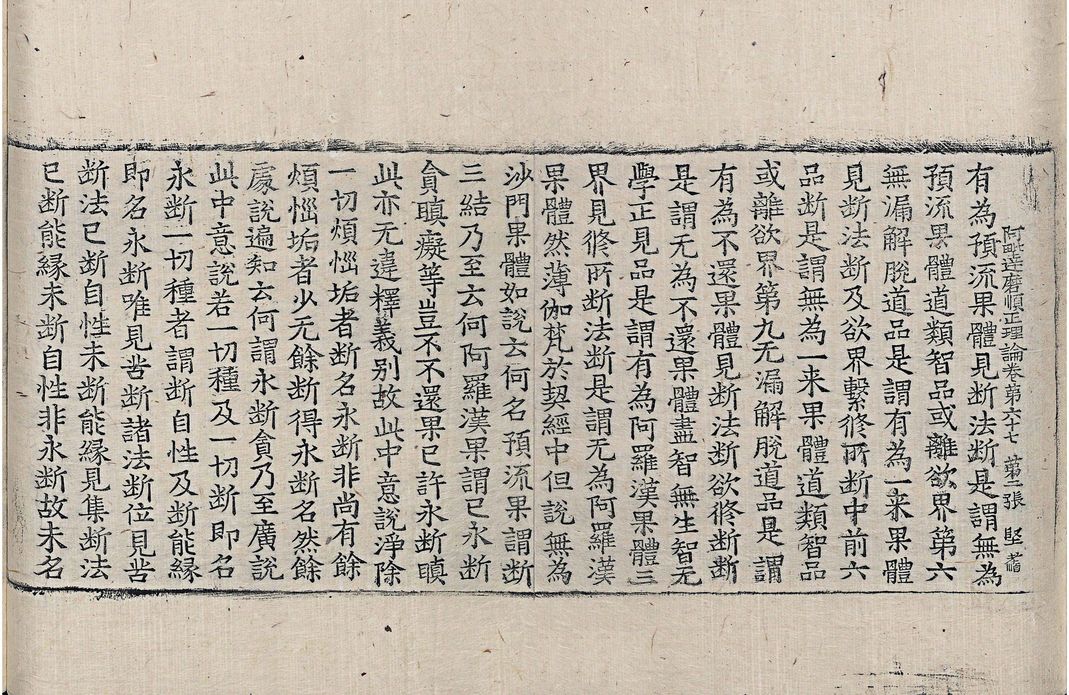 阿毗達磨順正理論卷第六十七 第二張 堅
有為預流果體見断法断是謂無為
預流果體道類智品或離欲界第六
無漏解脫道品是謂有為一来果體
見断法断及欲界繫修所断中前六
品断是謂無為一来果體道類智品
或離欲界第九无漏解脫道品是謂
有為不還果體見断法断欲修断断
是謂无為不還果體盡智無生智无
學正見品是謂有為阿羅漢果體三
界見修所断法断是謂无為阿羅漢
果體然薄伽梵於契經中但說無為
沙門果體如說云何名預流果謂断
三結乃至云何阿羅漢果謂已永断
貪瞋癡等豈不不還果已許永断瞋
此亦无違釋義别故此中意說淨除
一切煩惱垢者断名永断非尚有餘
煩惱垢者少无餘断得永断名然餘
處說遍知云何謂永断貪乃至廣說
此中意說若一切種及一切断即名
永断一切種者謂断自性及断能緣
即名永断唯見苦断諸法断位見苦
断法已断自性未断能緣見集断法
已断能緣未断自性非永断故未名